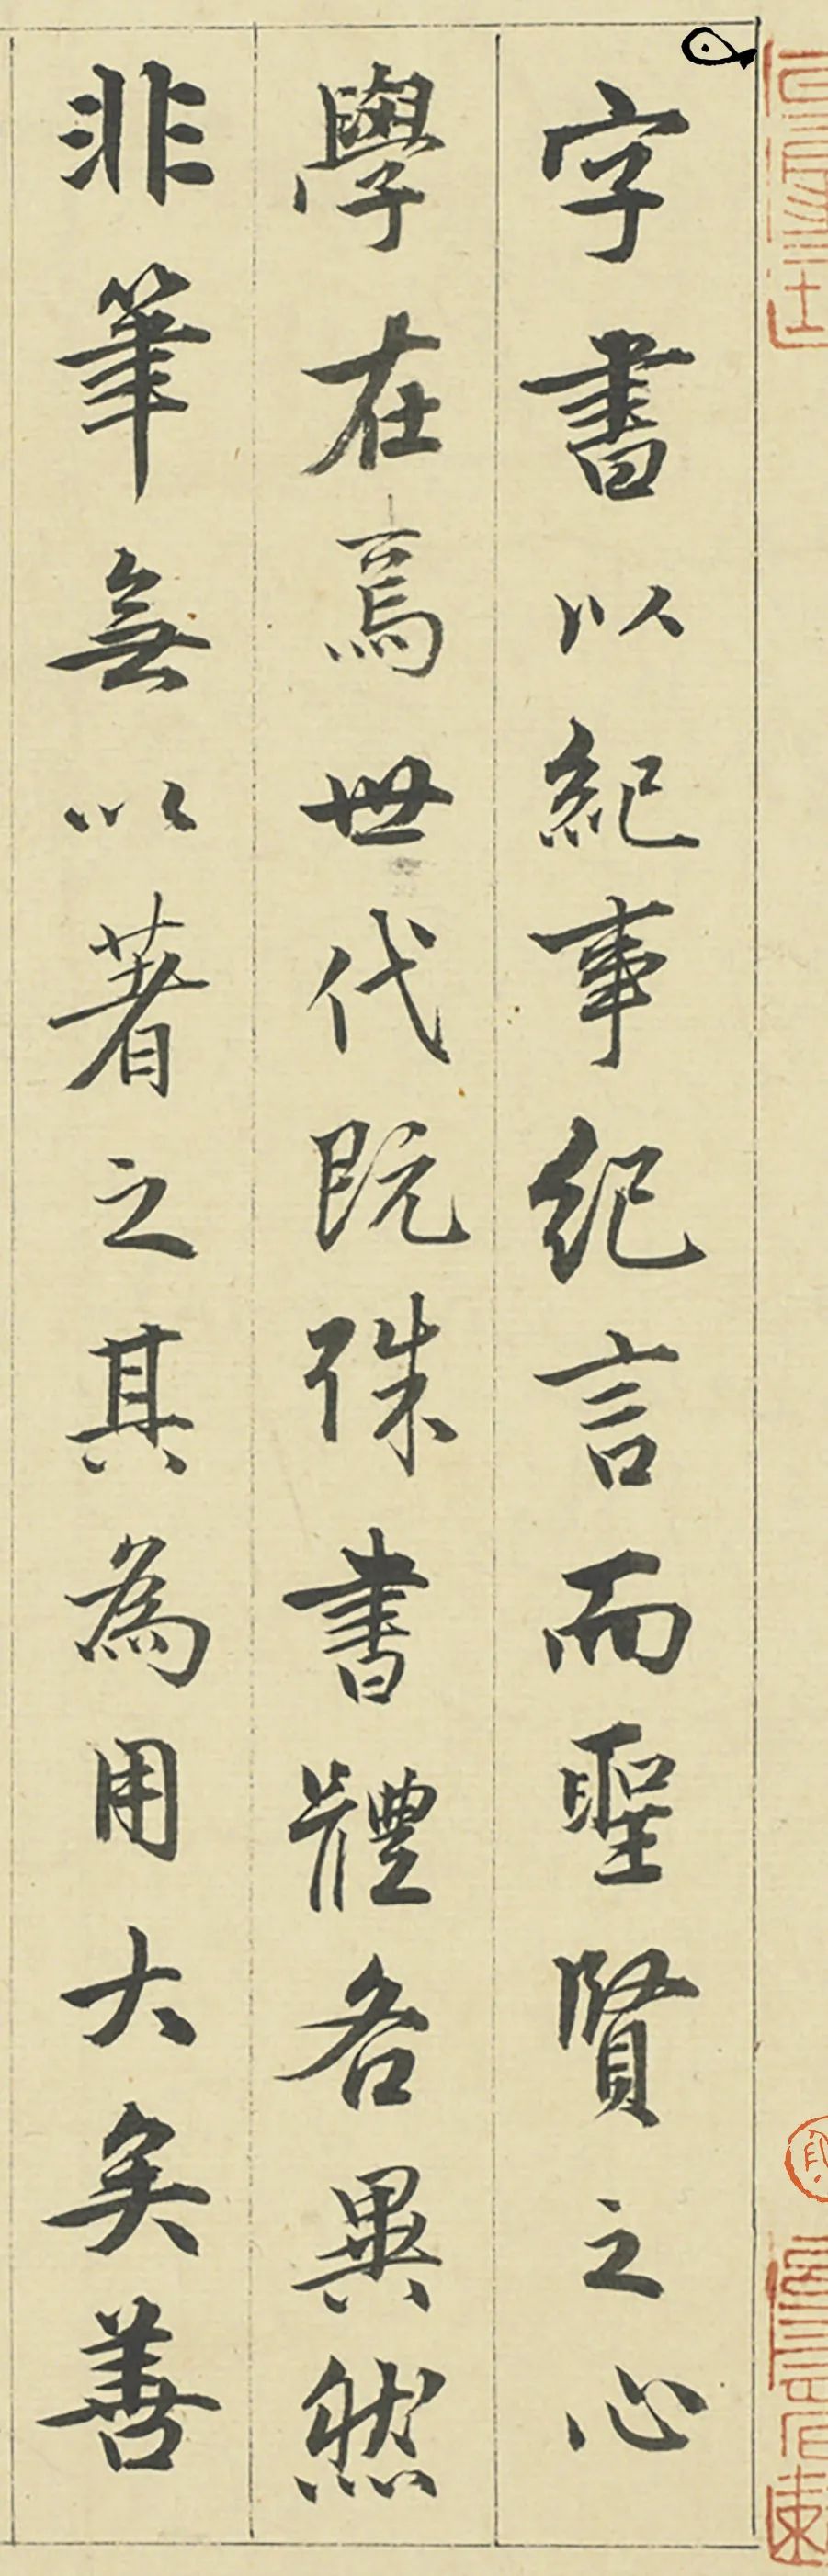 字書以紀事紀言而聖賢之心
學在焉世代既殊書體各異然
非筆無以著之其為用大矣善